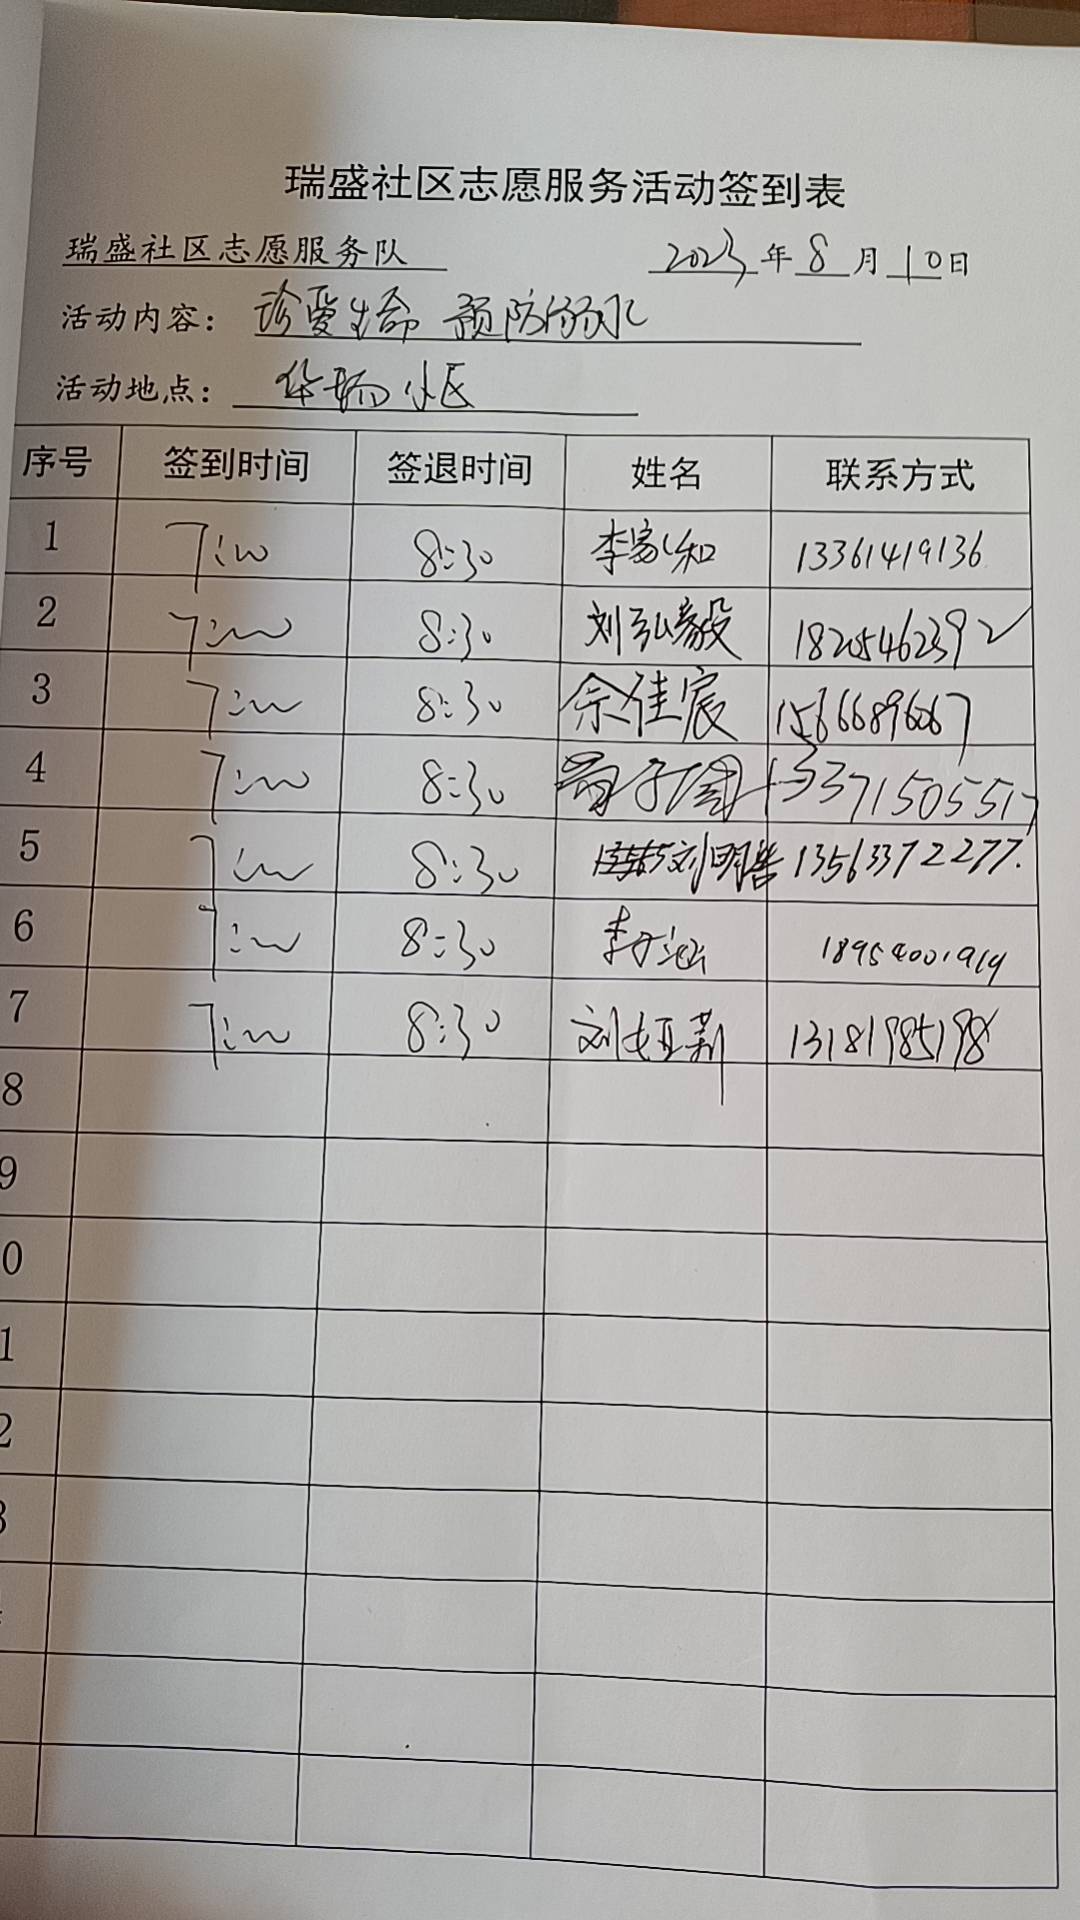 瑞盛社区志愿服务活动签到表
瑞盛社区志愿服务队 2023年8月10日
活动内容：珍爱生命 预防溺水
活动地点：华杨小区
序号 签到时间 签退时间 姓名 联系方式
1 7:00 8:30 李家和 13361419136
2 7:00 8:30 刘弘毅 18205462392
3 7:00 8:30 佘佳宸 15666896067
4 7:00 8:30 13371505517
5 7:00 8:30 刘明浩 13563372277.
6 7:00 8:30 18954001919
7 7:00 8:30 13181985198
8
9
0
1
2
3